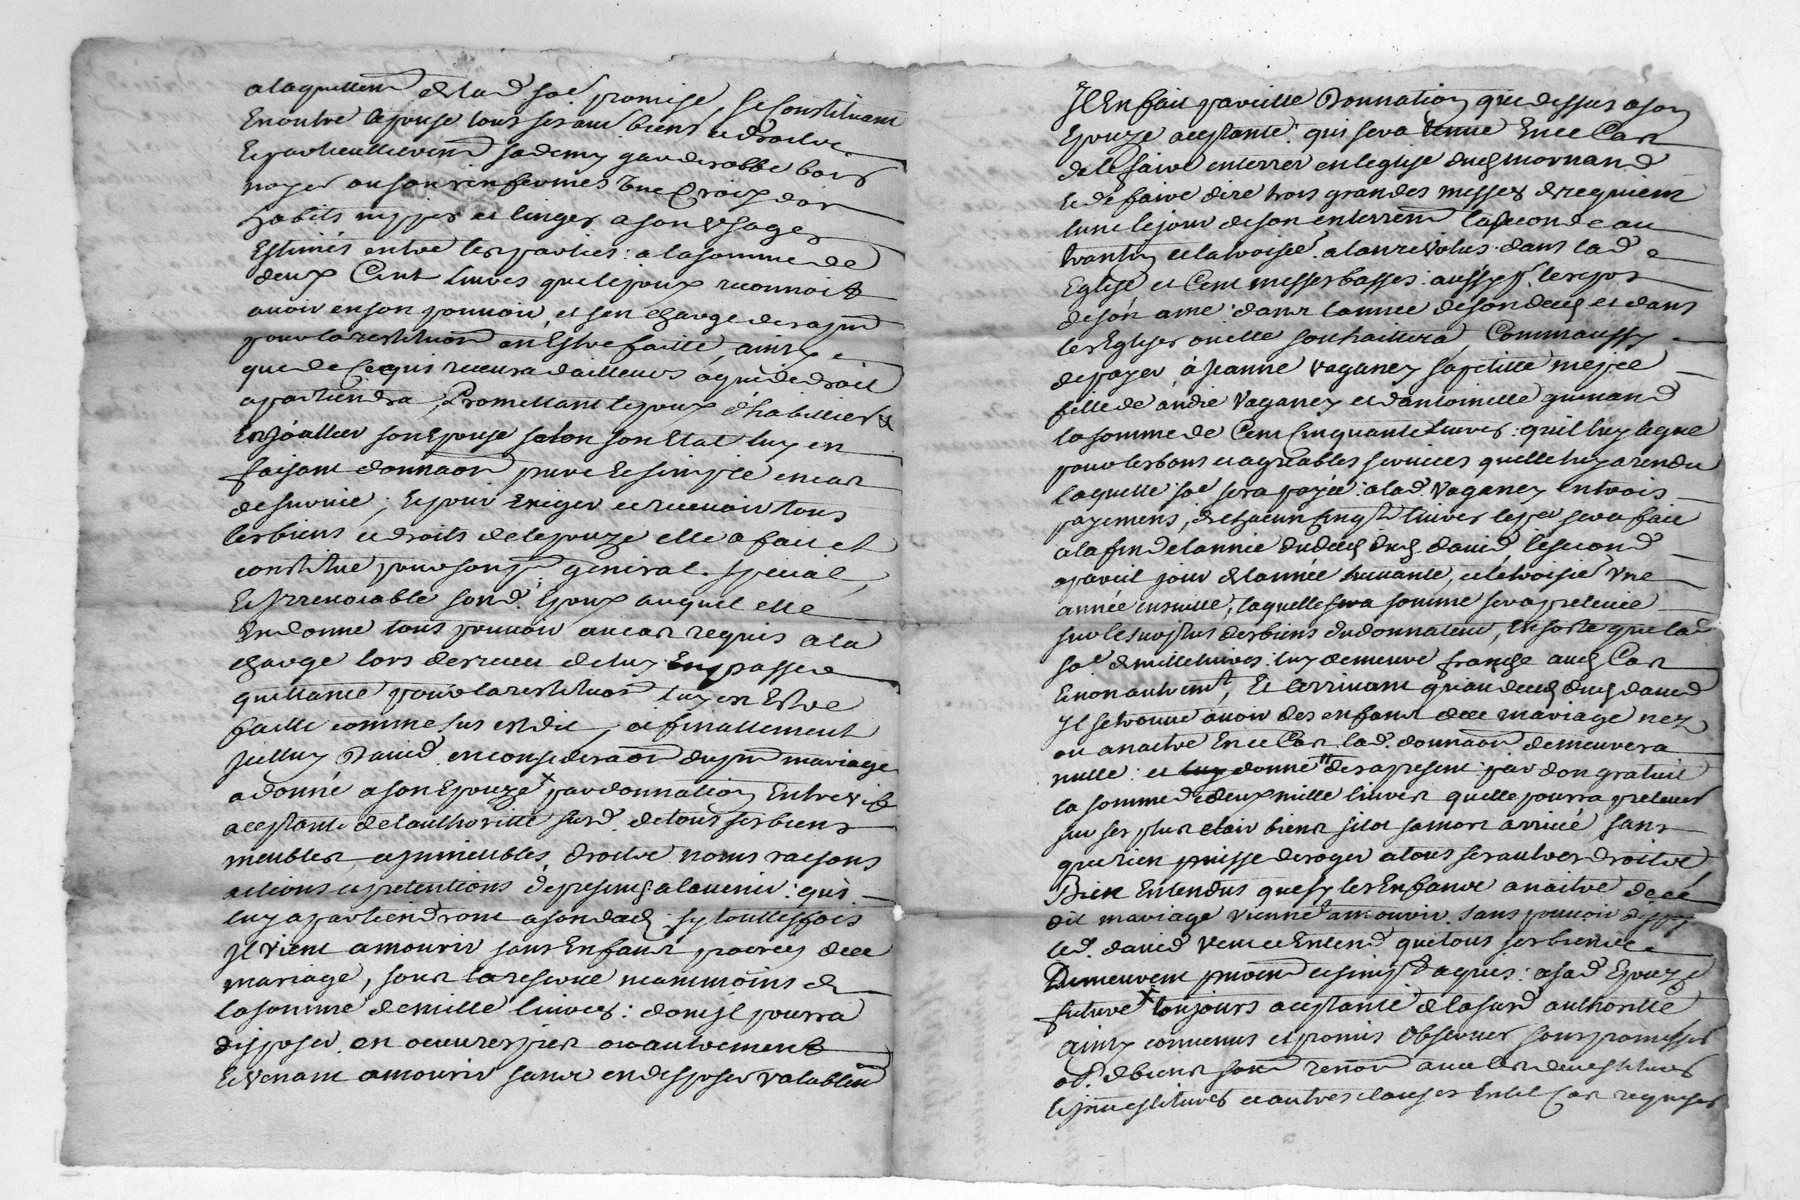 a laquellem.̄ de lad. so.e promise, se constituant
En outre lepouse tous ses aut. biens et droits
Et particullierem.̄ sademy garderobbe bois
noyer ou son renfermes Une Croix dor
habits nippes et linges a son Usage
Estimés entre les parties : a la somme de
deux Cent Livres que lepoux reconnoit
avoir en son pouvoir, et sen charge des apnt
pour la restituōn en Estre faitte, ainsy
que de Ce quis recevra dailleurs a qui de droit
apartiendra, Promettant lepoux d'habillier &
Enjoaller son Epouse selon son Etat luy en
faisant donnaōn pure et simple en cas
de survie ; Et pour Exiger et recevoir tous
les biens et droits de lepouze elle a fait et
constitue pour son pr. général. special,
Et Irrevocable sond. Epoux auquel elle
En donne tous pouvoir en cas requis a la
charge lors des receu de luy En passer
quittance pour la restituōn luy en Estre
faitte comme sus est dit, et finallement
Icelluy David en consideraōn du pnt mariage
a donné a son Epouze x par donnation Entre vifs
aceptante de lauthoritte susd. de tous ses biens
meubles, et immeubles, droits noms raisons
actions et pretentions de present et a lavenir : qui
luy apartiendront a son deces ; sy touttesfois
Il vient amourir sans Enfans procrees dece
mariage, sous la reserve neammoins de
la somme de mille livres : dont jl pourra
disposer en oeuvres pies ou autrement
Et venant amourir sans en disposer valablem.̄
Il En fait pareille Donnation que dessus a son
Epouze aceptante : qui sera tenue En ce Cas
de le faire enterrer en leglise dud. mornand
Et de faire dire trois grandes messes de requiem
lune le jour de son enterrem.̄ la seconde au
trantin et la troisie. a lan revolus dans lad.
Eglise et Cent messes basses aussy pr. le repos
de son ame : dans lannee de son deces et dans
les Eglises ou elle souhaittera, Comm aussy
de payer à Jeanne Vaganey sa petitte niepce
fille de andré Vaganey et dantoinette guinand
la somme de Cent Cinquante Livres : quil luy legue
pour les bons et agréables services quelle luy a rendu
laquelle soe sera payée : a lad. Vaganey en trois
payemens, de chacun Cinqte livres le per sera fait
a la fin de lannée du deces dud. david, le second
a pareil jour de lannée suivante, et le troisie. Une
année ensuitte, laquelle somme sera prelevée
sur le surplus des biens du donnateur, En sorte que lad.
soe de mille livres : luy demeure franche aud. Cas
Et non autremt, Et arrivant qu'au deces dud. david
Il se trouve avoir des enfans de ce mariage nez
ou a naitre En ce Cas lad. donnaōn demeurera
nulle : et donne des a present par don gratuit
la somme de deux mille livres quelle pourra prelever
sur ses plus clair biens sitot sa mort arrivé sans
que rien puisse deroger a tous ses autres droits
Bien Entendus que sy les Enfans a naitre dece
dit mariage viennēt amourir sans pouvoir disposer
led. david veut et Entend que tous ses biens
Demeurent purem.̄ et simplt aquis : a sad. Epouze
future x toujours aceptante de la susd. authoritte
ainsy convenus et promis Observer sous promesses
ob. de biens soum. renon. avec les devestitures
Et jnvestitures et autres clauses En tel Cas requises